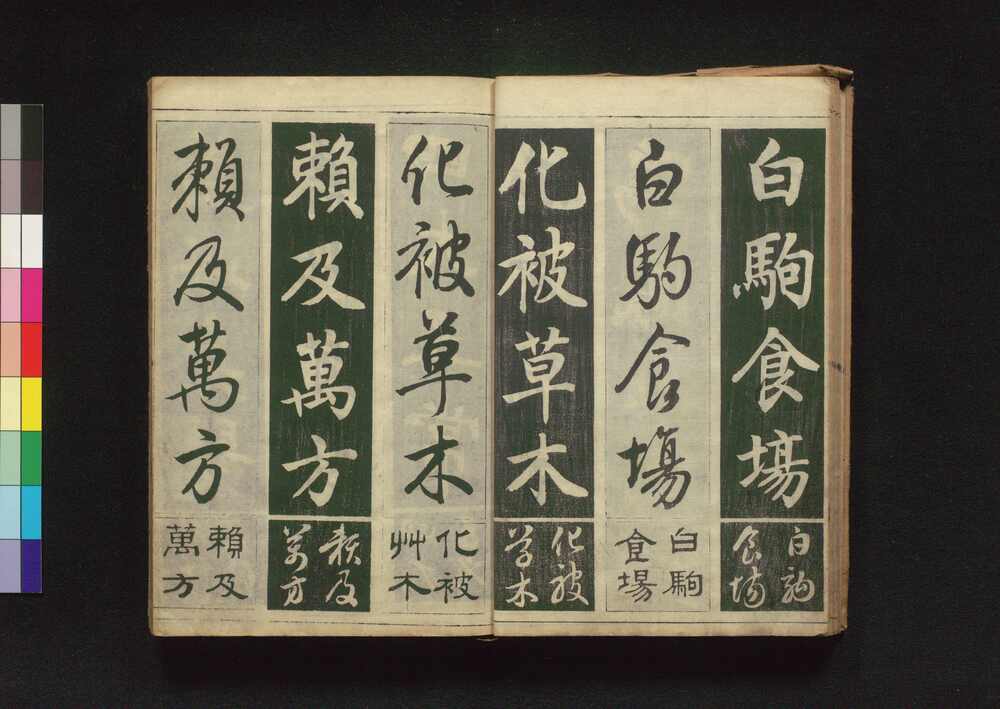 白駒食場
白駒
食場
白駒食場
白駒
食場
化被草木
化被
草木
化被草木
化被
艸木
賴及萬方
賴及
萬方
賴及萬方
賴及
萬方